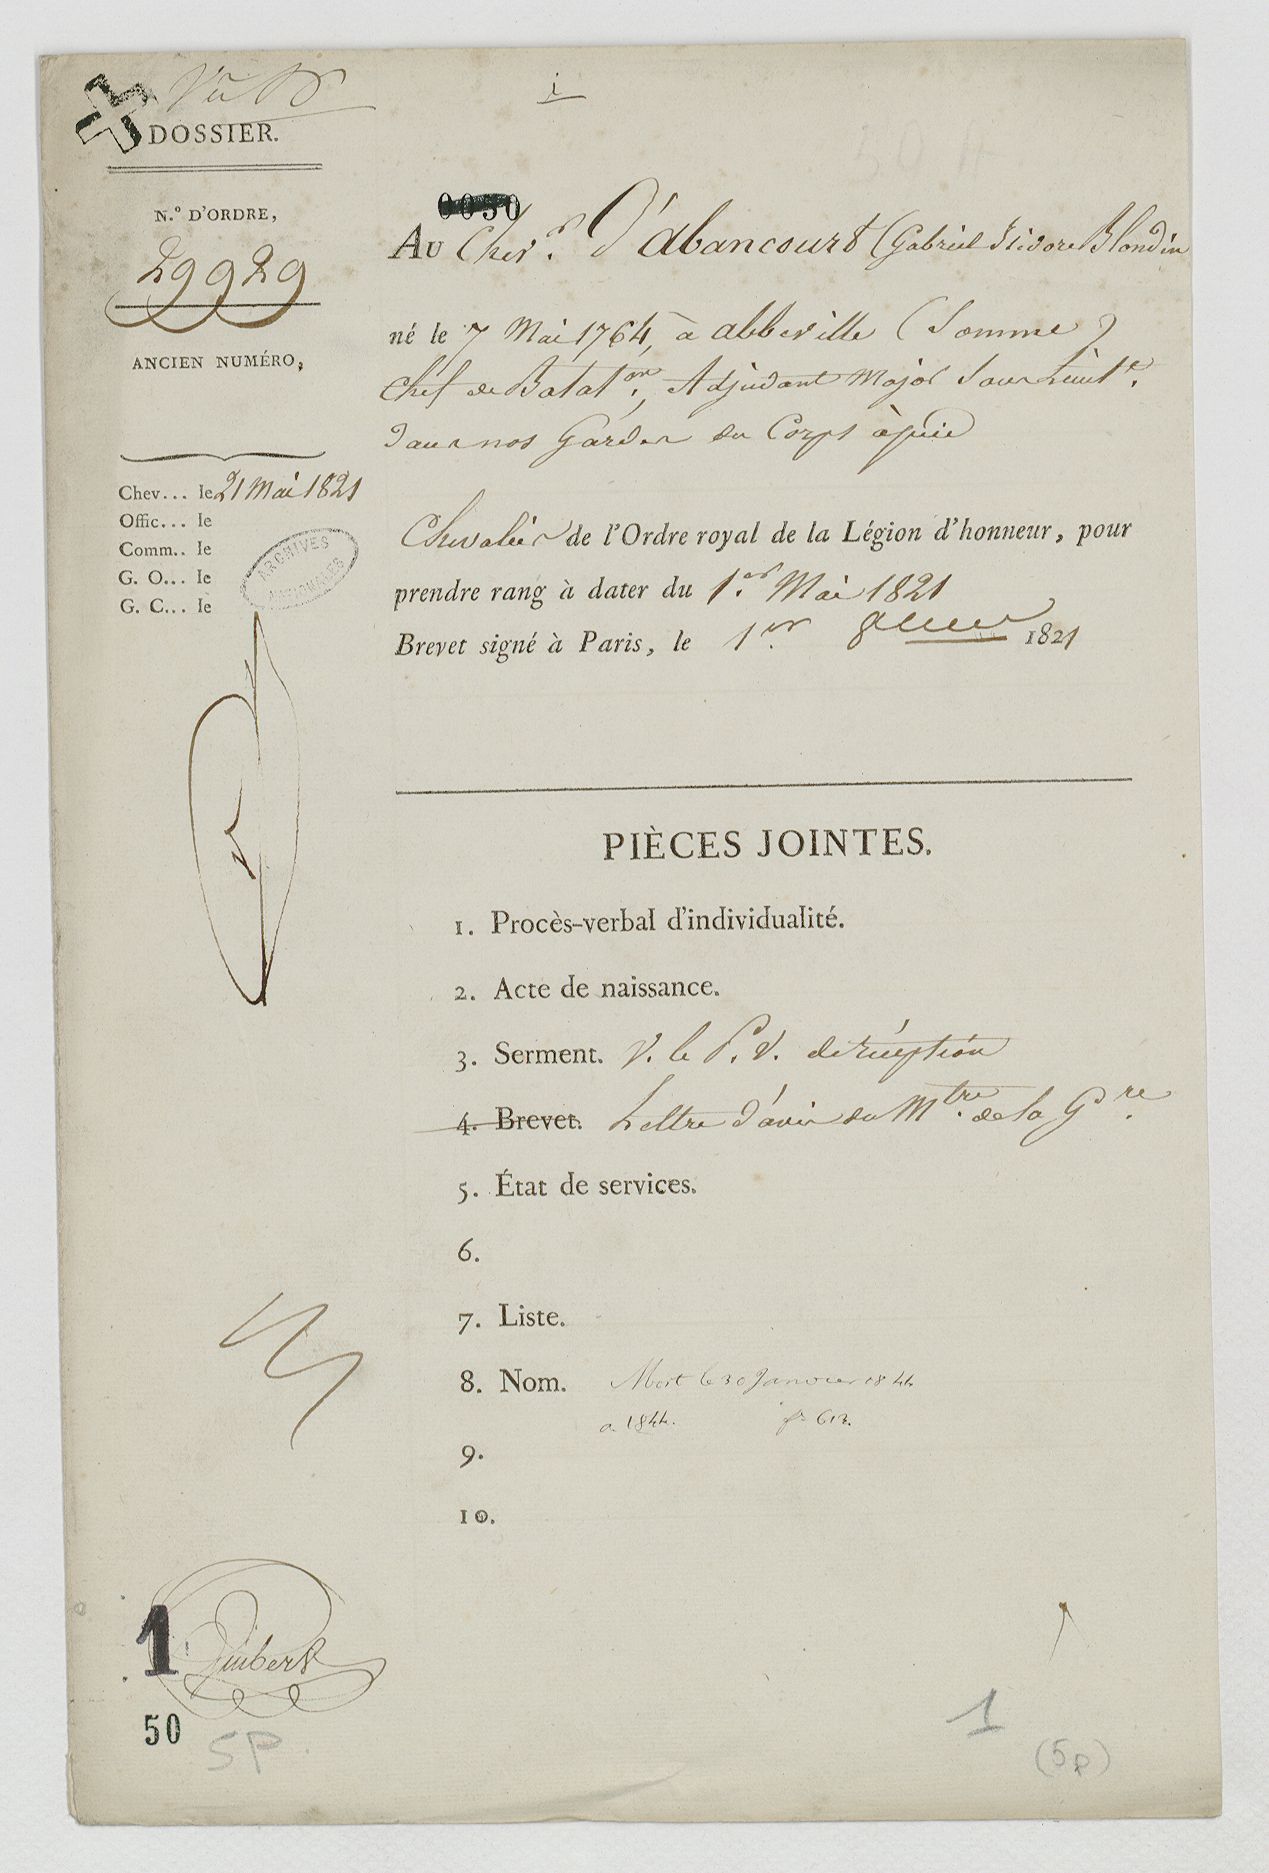 Vu
1
DOSSIER.
N.º D'ORDRE,
29929
ANCIEN NUMÉRO,
Chev... le 21 Mai 1821
Offic... le
Comm.. le
G. O... le
G. C... le
ARCHIVES NATIONALES
0050
AU Chev.er D'abancourt (Gabriel Isidore Blondin
né le 7 Mai 1764, à abbeville (Somme)
Chef de Batat.on, Adjudant Major Sous Lieut.t
dans nos Gardes du Corps à pied
Chevalier de l'Ordre royal de la Légion d'honneur, pour
prendre rang à dater du 1.er Mai 1821
Brevet signé à Paris, le 1.er 1821
PIÈCES JOINTES.
1. Procès-verbal d'individualité.
2. Acte de naissance.
3. Serment. V. le P. V. de réception
4. Brevet. Lettre d'avis du M.tre de la G.re
5. État de services.
6.
7. Liste.
8. Nom. Mort le 30 Janvier 1844
a. 1844. fo 613.
9.
10.
1
50
5P
1
(5p)